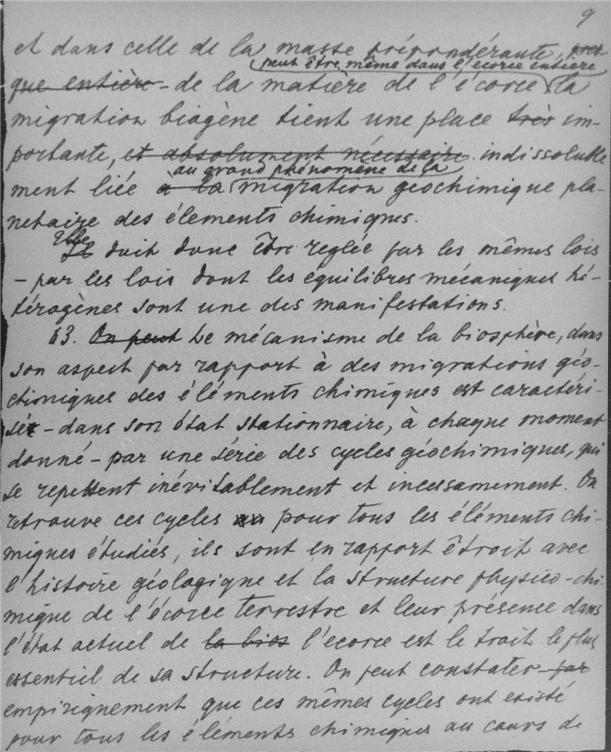 9
et dans celle de la masse prépondérante, pres
peut être même dans l'écorce entière
que entière - de la matière de l'écorce la
migration biogène tient une place très im-
portante, et absolument nécessaire indissoluble
au grand phénomène de la
ment liée a la migration géochimique pla-
netaire des élements chimiques.
Elle
Il doit donc être reglée par les mêmes lois
- par les lois dont les équilibres mécaniques hé-
térogènes sont une des manifestations.
63. On peut Le mécanisme de la biosphère, dans
son aspect par rapport à des migrations géo-
chimiques des éléments chimiques est caractéri-
sé - dans son état stationnaire, à chaque moment
donné - par une série des cycles géochimiques, qui
se repettent inévitablement et incessamement. On
retrouve ces cycles pour tous les éléments chi-
miques étudiés, ils sont en rapport êtroit avec
l'histoire géologique et la structure physico-chi
mique de l'écorce terrestre et leur présence dans
l'état actuel de la bios l'ecorce est le trait le plus
essentiel de sa structure. On peut constater par
empiriquement que ces mêmes cycles ont existé
pour tous les éléments chimiques au cours de